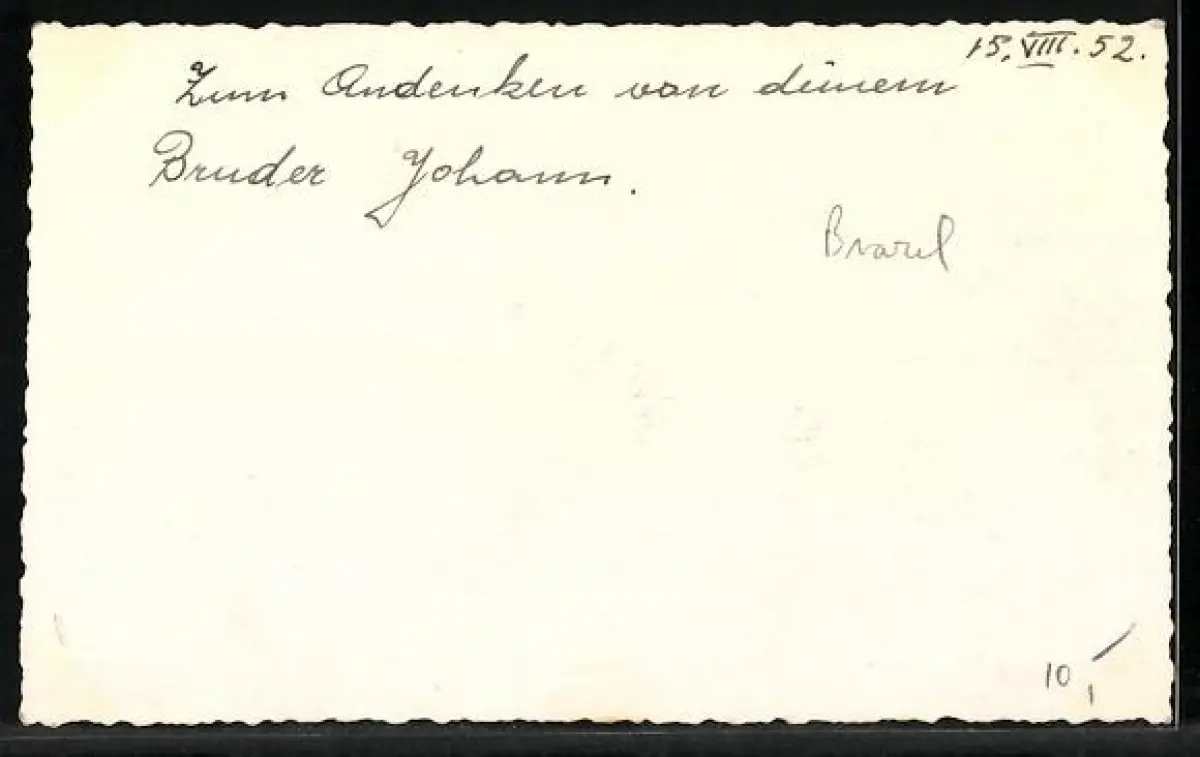 15. VIII. 52.
Zum Andenken von deinem
Bruder Johann.
10